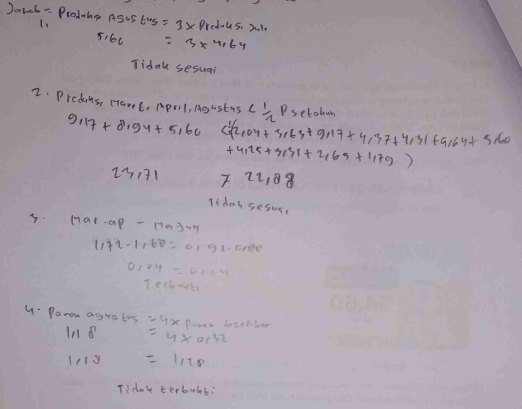 Jawab =
1. Produksi Agustus = 3 x Produksi Juli
5,60 = 3 x 4,64
Tidak sesuai
2. Produksi Maret, April, Agustus < 1/2 P setahun
9,17 + 8,94 + 5,60 < 1/2 (2,04 + 3,63 + 9,17 + 4,37 + 4,31 + 4,64 + 5,60
+ 4,25 + 3,31 + 2,69 + 1,79)
23,71 > 22,88
Tidak sesuai
3. Mar-ap =
1,72 - 1,68 = 0,92 -
0,04 = 0,04
Terbukti
4. Panen agustus = 4 x Panen
1,18 = 4 x 0,32
1,18 = 1,28
Tidak terbukti